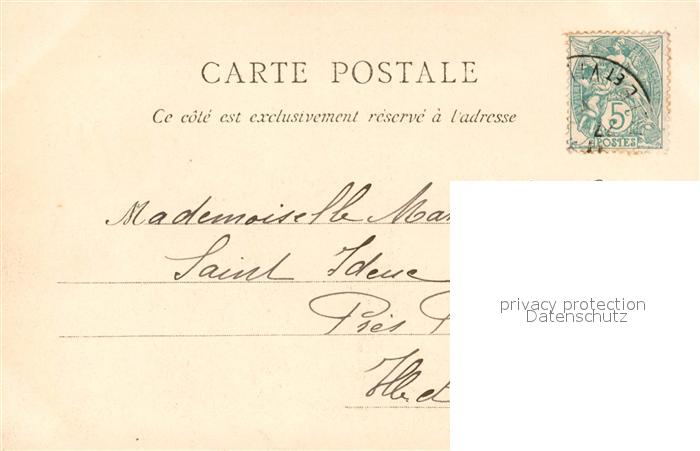 CARTE POSTALE
Ce côté est exclusivement réservé à l'adresse
5c
POSTES
Mademoiselle Mar
Saint Ideuc
Près P
Ille et
privacy protection
Datenschutz